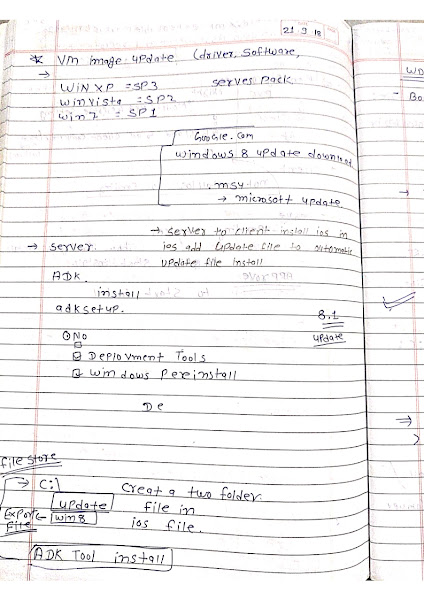 21 9 18
* VM Image update (driver, software,
→
WIN XP = SP3 serves pack
win vista = SP2
win 7 = SP1
Google.com
windows 8 update download
.msu
→ microsoft update
→ server to client install ios in
→ server ios add update file to automatic
update file install
ADK
install
adksetup.
8.1
update
No
Deployment Tools
windows pereinstall
De
file store
→ C:\ Creat a two folder
update file in
Export win 8 ios file.
file
ADK Tool install
WD
- Bo
→
⇒